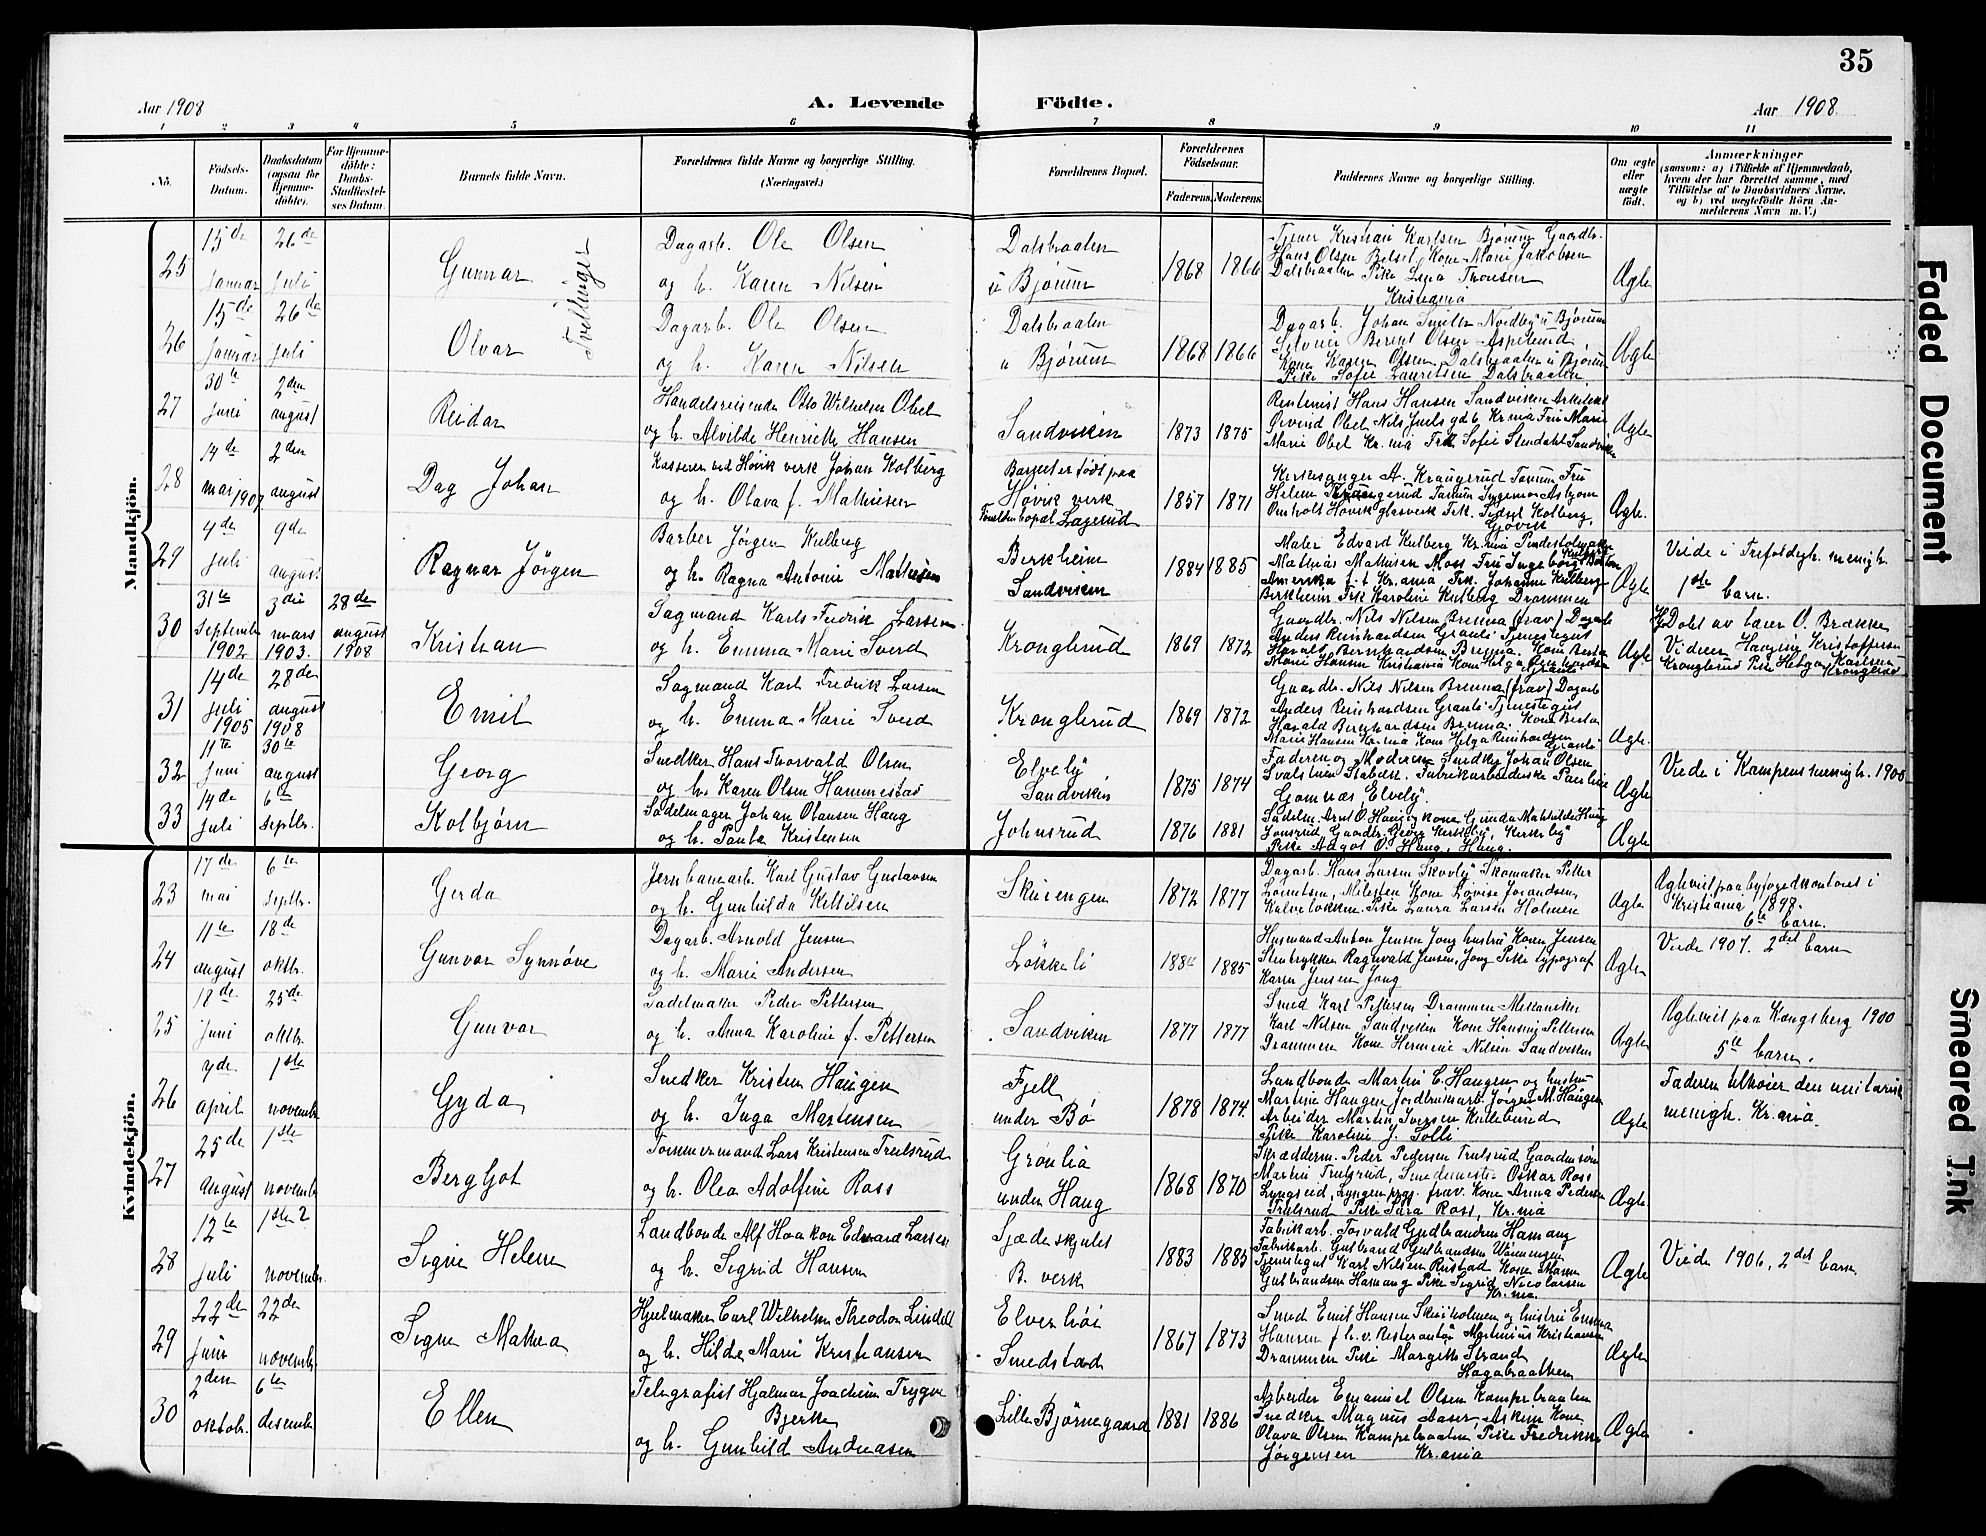 35
Aar 1908
A. Levende Födte.
Aar 1908.
1 2 3 4 5 6 7 8 9 10 11
No.
Fødsels-Datum.
Daabsdatum (ogsaa for Hjemme-døbte).
For Hjemme-døbte: Daabs-Stadfæstelses Datum.
Barnets fulde Navn.
Forældrenes fulde Navne og borgerlige Stilling.
(Næringsvei.)
Forældrenes Bopæl.
Forældrenes Fødselsaar.
Faderens. Moderens.
Faddernes Navne og borgerlige Stilling.
Om ægte eller uægte født.
Anmærkninger
(saasom: a) i Tilfælde af Hjemmedaab,
hvem der har forrettet samme, med
Tilføielse af to Daabsvidners Navne,
og b) ved uægtefødte Børn An-
melderens Navn m. V.)
Mandkjön.
25
15de Januar
26de Juli
Gunnar
Tvillinger
Dagarb. Ole Olsen
og h. Karen Nilsen
Dalsbraaten
u Bjørum
1868 1866
Tjener Kristian Karlsen Bjørum Gaardbr.
Hans Olsen Kone Marie Jakobsen
Dalsbraaten Pike Lina Tronsen
Kristiania
Ægte
26
15de Januar
26de Juli
Olvar
Dagarb. Ole Olsen
og h. Karen Nilsen
Dalsbraaten
u Bjørum
1868 1866
Dagarb. Johan Smith Nordby u Bjørum
Bernt Olsen Aspelund
Kone Karen Olsen Dalsbraaten u Bjørum
Pike Sofie Lauritsen Dalsbraaten
Ægte
27
30te Juni
2den august
Reidar
Handelsreisende Otto Wilhelm Obel
og h. Alvilde Henriette Hansen
Sandviken
1873 1875
Rentenist Hans Hansen Sandviken Arkitekt
Øivind Obel Nils Juels gd 6 Kr.nia Fru Marie
Marie Obel Kr.nia Frk Sofie Stendahl Sandviken
Ægte
28
14de mai 1907
2den august
Dag Johan
Kasserer ved Høvik verk Johan Kolberg
og h. Olava f. Mathisen
Barnet er født paa
Høvik verk
Foreldres bopæl Lagerud
1857 1871
Kirkesanger A. Kraugerud Tanum Fru
Helene Kraugerud Tanum Asbjørn
Omholt Høvik glasverk Frk. Sidsel Kolberg,
Gjøvik
Ægte.
29
4de Juli
9de august
Ragnar Jørgen
Barber Jørgen Kulberg
og h. Ragna Antonie Mathisen
Berkheim
Sandviken
1884 1885
Maler Edvard Kulberg Kr.nia
Mathias Mathisen Moss Fru Ingeborg Kulberg Boston
Amerika f.t Kr.ania Frk. Johanne Kulberg
Birkheim Frk Karoline Kulberg Drammen
Ægte
Viede i Trefoldigh. menigh.
1ste barn.
30
31te September 1902
3die mars 1903.
28de august 1908
Kristian
Sagmand Karl Fredrik Larsen
og h. Emma Marie Sverd
Kronglerud
1869 1872
Gaardbr. Nils Nilsen Brenna (frav) Dagarb
Anders Reinhardsen Granli Tjenestegut
Harald Bernhardsen Brenna. Kone Berta
Marie Hansen Kristiania Kone Helga Reinhardsen
Granli
Ægte
Hj Døbt av lærer O. Brække
Vidner Hansine Kristoffersen
Kronglerud Pike Helga Karlsen
Kronglerud
31
14de Juli 1905
28de august 1908
Emil
Sagmand Karl Fredrik Larsen
og h. Emma Marie Sverd
Kronglerud
1869 1872
Gaardbr. Nils Nilsen Brenna (frav) Dagarb
Anders Reinhardsen Granli Tjenestegut
Harald Bernhardsen Brenna. Kone Berta
Marie Hansen Kr.nia Kone Helga Reinhardsen
Granli
Ægte.
32
11te Juni
30te august
Georg
Snedker Hans Thorvald Olsen
og h. Karen Olsen Hammestad
Elvely
Sandviken
1875 1874
Faderen og Moderen Snedker Johan Olsen
Stabæk. Fabrikarbeiderske Pauline
Gomnæs, Elvely".
Ægte
Viede i Kampens menigh. 1900
33
14de Juli
6te Septbr.
Kolbjørn
Sadelmager Johan Olausen Haug
og h. Paula Kristensen
Johnsrud
1876 1881
Sadelm. Arnt O. Haug og kone Gunda Mathilde Haug
Jonsrud, Gaardbr. Georg Kirkeby, Kirkeby
Pike Aagot O. Haug, Haug.
Ægte
Kvindekjön.
23
17de mai
6te Septbr.
Gerda
Jernbanearb. Karl Gustav Gustavsen
og h. Gunhilda Kittilsen
Skuiengen
1872 1877
Dagarb. Hans Larsen Skovly Skomaker Petter
Lorentsen, Kone Lovise Jorandsen,
Kalveløkken Pike Laura Larsen Holmen
Ægte
Ægteviet paa byfogedkontoret i
Kristiania 1898.
6te barn.
24
11te august
18de oktbr.
Gunvor Synnøve
Dagarb. Arnold Jensen
og h. Marie Andersen
Løkkeli
1885
Husmand Anton Jensen Jong hustru Karen Jensen
Stentrykker Ragnvald Jensen, Jong Pike typograf
Karen Jensen Jong
Ægte
Viede 1907. 2det barn
25
18de Juni
25de oktbr.
Gunvor
Sadelmaker Peder Pettersen
og h. Anna Karoline f. Pettersen
Sandviken
1877 1877
Smed Karl Pettersen Drammen Mekaniker
Karl Nilsen Sandviken Kone Hansine Pettersen
Drammen Kone Hermine Nilsen Sandviken
Ægte
Ægteviet paa Kongsberg 1900
5te barn.
26
april
1ste november
Gyda
Snedker Kristen Haugen
og h. Inga Martinsen
Fjell
under Bø
1878 1874.
Landbonde Martin C. Haugen og hustru
Martine Haugen Jordbrukarb. Jørgen M. Haugen
Arbeider Martin Iversen Kulleburud
Pike Karoline J. Solli
Ægte
Faderen tilhører den unitariske
menigh. Kr.ania.
27
25de august
1ste november
Bergljot
Tømmermand Lars Kristensen Trulsrud
og h. Olea Adolfine Ross
Grønlia
under Haug
1868 1870
Skrædderm. Peder Pedersen Trulsrud, Gaardmandssøn
Martin Trulsrud, Smedemester Oskar Ross
Lyngseid, Lyngen prgj. frav. Kone Anna Pedersen
Trulsrud Pike Sara Ross, Kr.nia
Ægte
28
12te Juli
1ste november
Signe Helene
Landbonde Alf Haakon Edvard Larsen
og h. Sigrid Hansen
Sjædeskjulet
B. verk
1883 1885
Fabrikarb. Torvald Gudbrandsen Hamang
Fabrikarb. Gulbrand Gulbrandsen Wenningen
Tjenestegut Karl Nilsen Rustad Kone Maren
Gulbrandsen Hamang Pike Sigrid Nicolaisen
Kr.nia.
Ægte
Viede 1906, 2det barn.
29
22de Juni
22de november
Signe Mathea
Hjulmaker Carl Wilhelm Theodor Lindell
og h. Hilda Marie Kristiansen
Elverhøi
Smedstad
1867 1873
Smed Emil Hansen Skuiholmen og hustru Emma
Hansen f. h. v. Restauratør Martinius Kristiansen
Drammen Pike Margith Strand
Hagabraatten
Ægte
30
2den oktobr.
6te desember
Ellen
Telegrafist Hjalmar Joachim Trygve
Bjerke
og h. Gunhild Andreasen
Lille Bjørnegaard
1881 1886
Arbeider Emanuel Olsen Kampebraaten
Snedker Magnus Aaser, Askim Kone
Olava Olsen Kampebraaten Pike Fredrikke
Jørgensen Kr.ania
Ægte
Faded Document
Smeared Ink